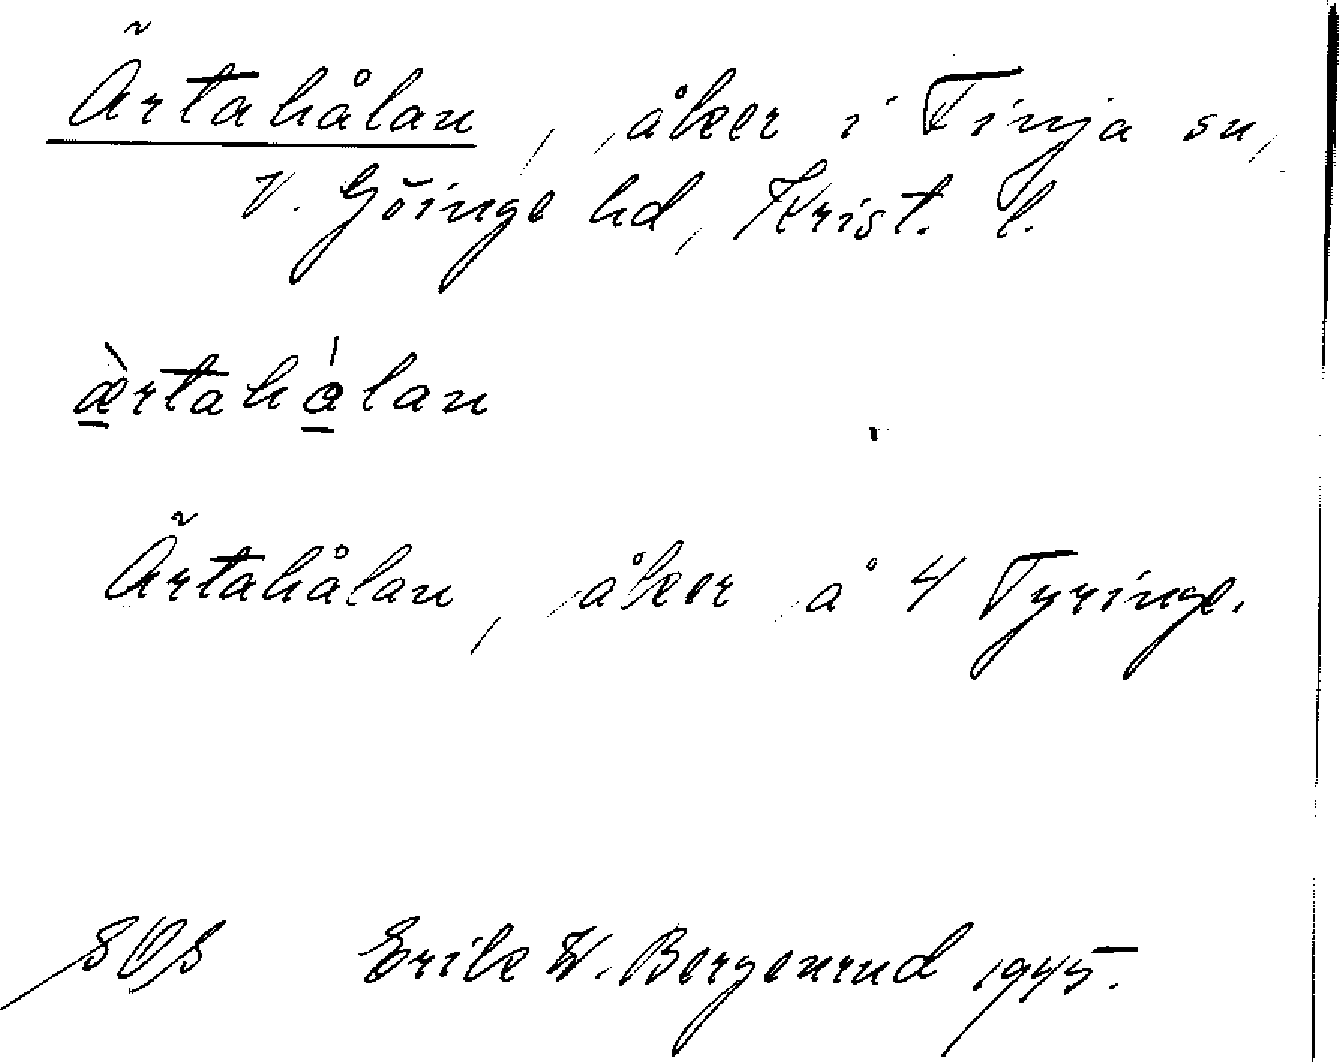 Ärtahålan, åker i Finja sn,
V. Göinge hd, Krist. l.
æ̀rtahá̱lan
Ärtahålan, åker å 4 Tyringe.
SOS Erik W. Bergenrud 1945.